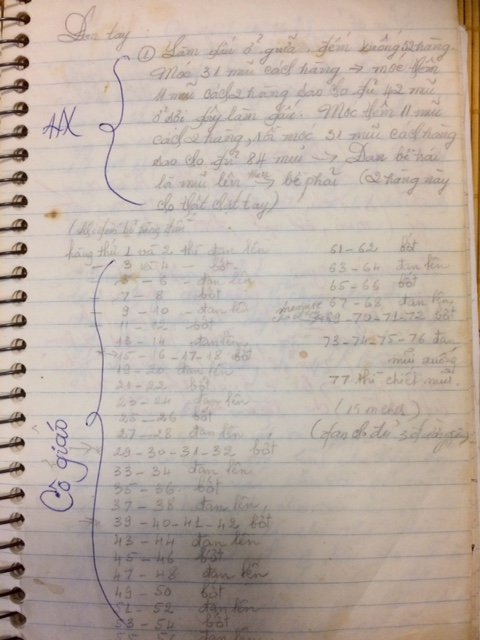 Đan tay
① Làm dấu ở giữa, đếm xuống 52 hàng.
Móc 31 mũi cách hàng → móc thêm
11 mũi cách 2 hàng sao cho đủ 42 mũi
ở đây làm dấu. Móc thêm 11 mũi
cách 2 hàng, rồi móc 31 mũi cách hàng
sao cho đủ 84 mũi → Đan bề trái
là mũi lên → bề phải (2 hàng này
cho thật chặt tay)
AX
hàng thứ 1 và 2 thì đan lên
3 và 4 - bột
5 - 6 - đan lên
7 - 8 bột
9 - 10 - đan lên
11 - 12 bột
13 - 14 đan lên
15 - 16 - 17 - 18 bột
19 - 20 đan lên
21 - 22 bột
23 - 24 đan lên
25 - 26 bột
27 - 28 đan lên
29 - 30 - 31 - 32 bột
33 - 34 đan lên
35 - 36 bột
37 - 38 đan lên
39 - 40 - 41 - 42 bột
43 - 44 đan lên
45 - 46 bột
47 - 48 đan lên
49 - 50 bột
51 - 52 đan lên
53 - 54 bột
Cô giáo
61 - 62 bột
63 - 64 đan lên
65 - 66 bột
67 - 68 đan lên
69 - 70 - 71 - 72 bột
73 - 74 - 75 - 76 đan
mũi xuống
77 thì chiết mũi.